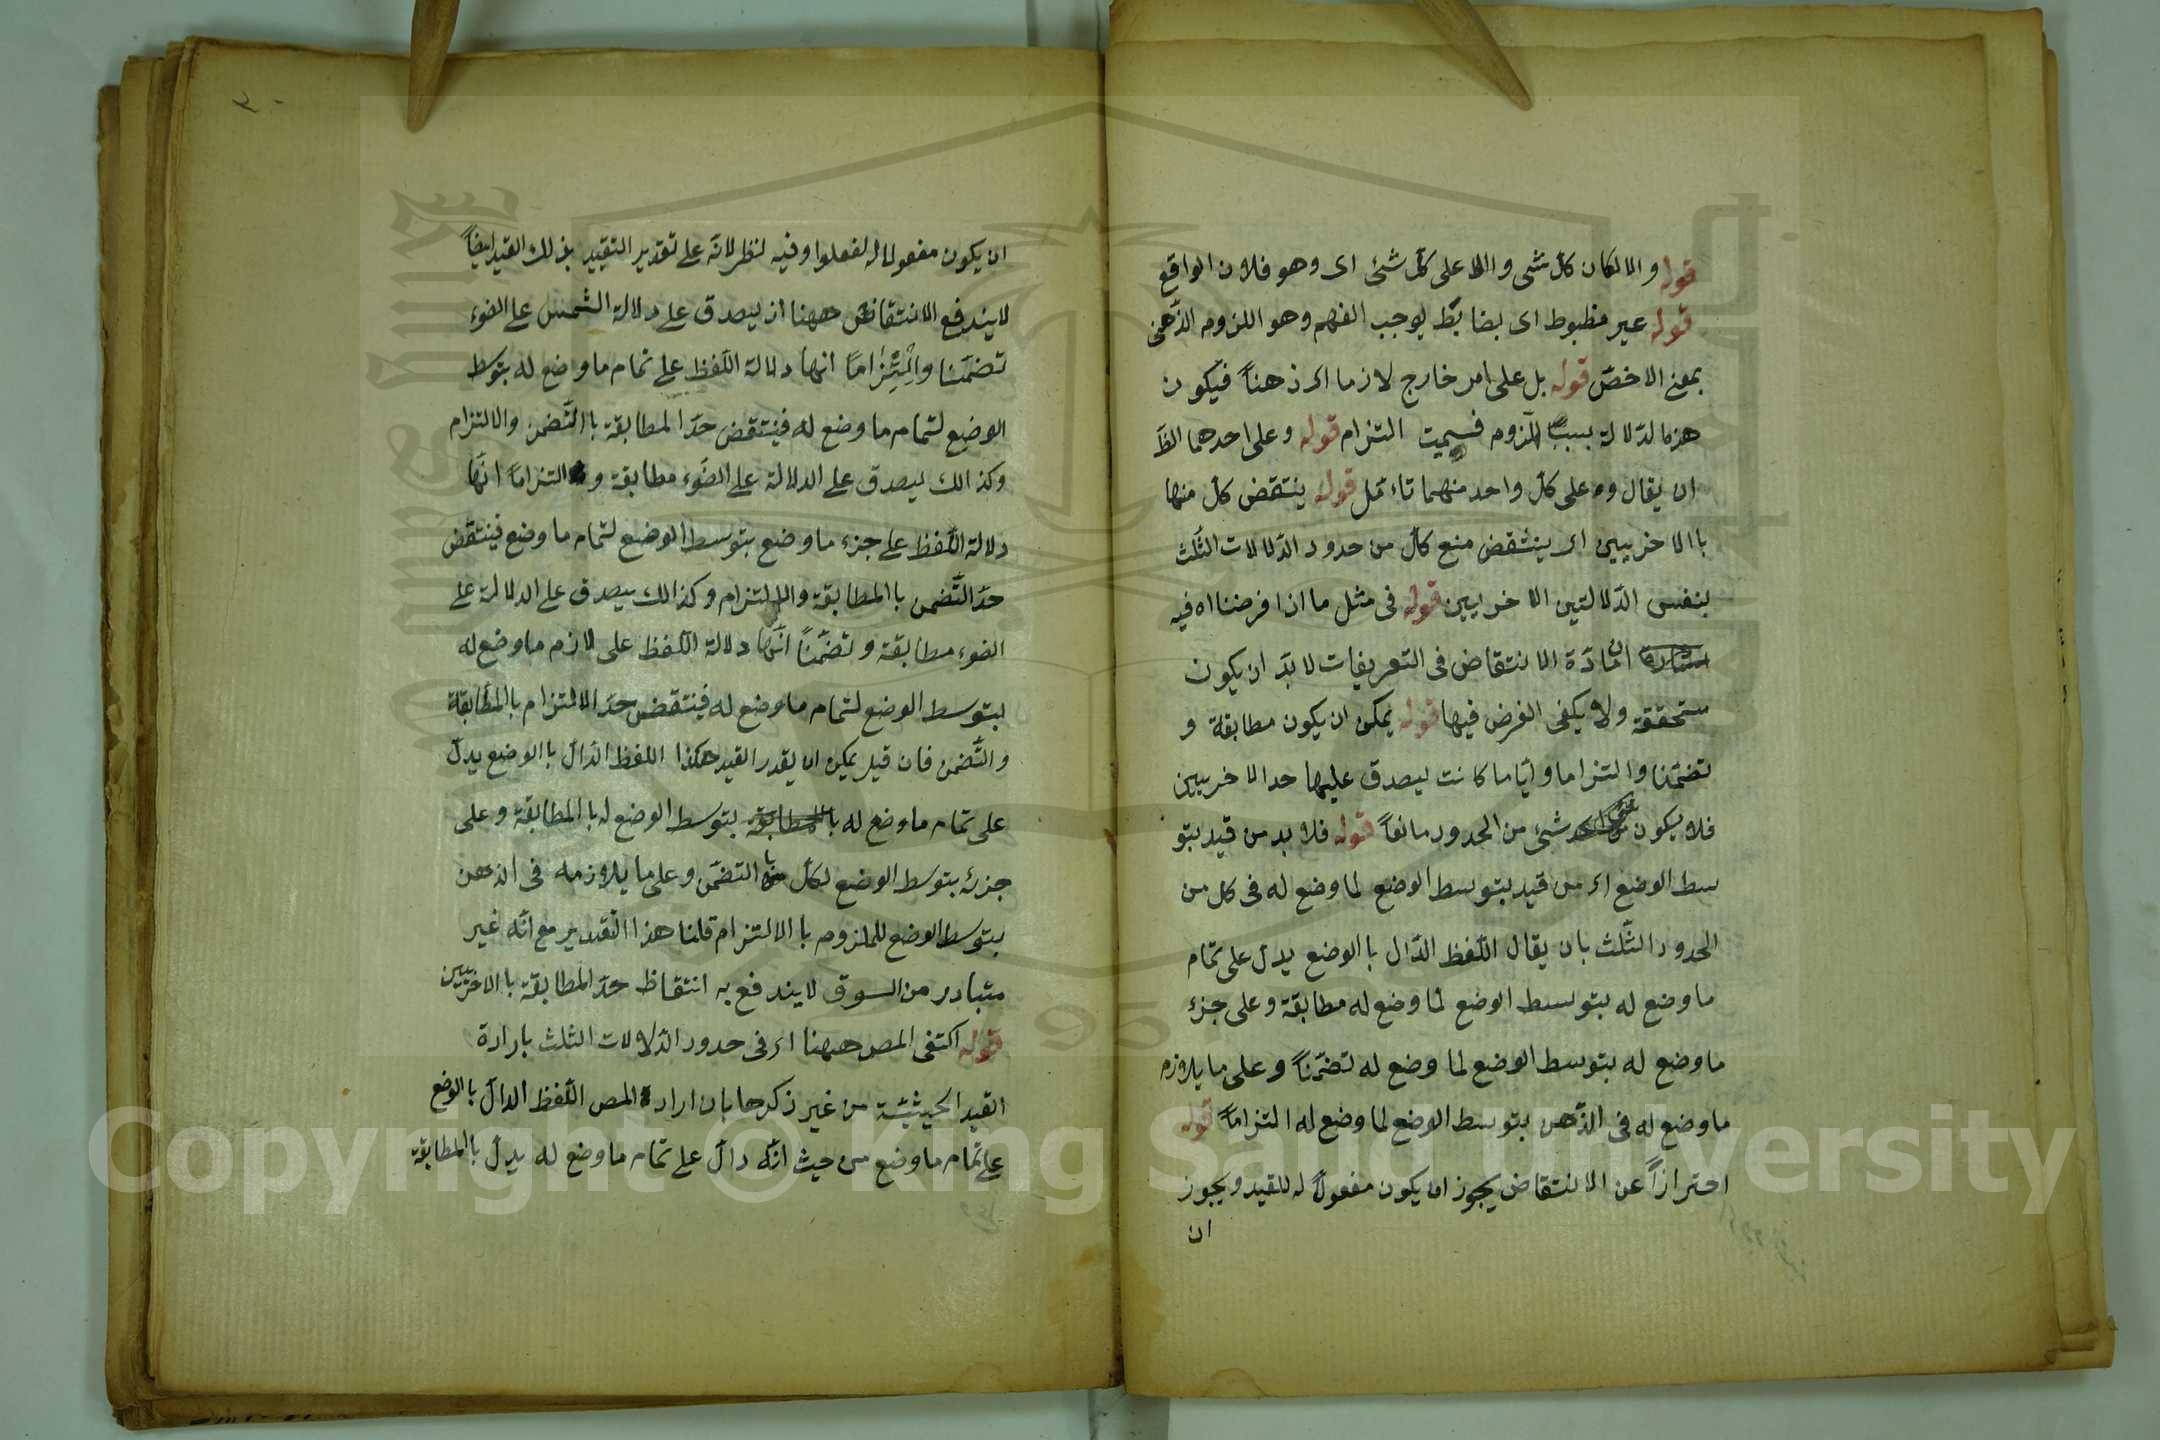 قوله والا لكان كل شئ والا على كل شئ اى وهو فلان الواقع
قوله غير مظبوط اى بضابط يوجب الفهم وهو اللزوم الذهنى
بمعنى الاخص قوله بل على امر خارج لازما اى ذهنا فيكون
هذه الدلالة بسبب اللزوم فسميت التزام قوله وعلى احدهما الظ
ان يقال و على كل واحد منهما تاءمل قوله ينتقض كل منها
باالاخريين اى ينتقض منع كل من حدود الدلالات الثلث
بنفس الدلالتين الاخريين قوله فى مثل ما اذا فرضنا اه فيه
ان مادة الانتقاض فى التعريفات لا بد ان يكون
متحققة ولا يكفى الفرض فيها قوله يمكن ان يكون مطابقة و
تضمنا والتزاما وايا ما كانت يصدق عليها حد الاخريين
فلا يكون شئ من الحدود مانعا قوله فلا بد من قيد بتو
سط الوضع اى من قيد بتوسط الوضع لما وضع له فى كل من
الحدود الثلث بان يقال اللفظ الدال باالوضع يدل على تمام
ما وضع له بتوسط الوضع لما وضع له مطابقة وعلى جزء
ما وضع له بتوسط الوضع لما وضع له تضمنا وعلى ما يلازم
ما وضع له فى الذهن بتوسط الوضع لما وضع له التزاما قوله
احترازا عن الانتقاض يجوز ان يكون مفعولا له للقيد ويجوز
ان
٣٠
ان يكون مفعولا له لفعلوا وفيه نظر لانه على تقدير التقييد بذلك القيد ايضا
لا يندفع الانتقاض ههنا اذ يصدق على دلالة الشمس على الضوء
تضمنا والتزاما انها دلالة اللفظ على تمام ما وضع له بتوسط
الوضع لتمام ما وضع له فينتقض حد المطابقة باالتضمن والالتزام
وكذالك يصدق على الدلالة على الضوء مطابقة و التزاما انها
دلالة اللفظ على جزء ما وضع بتوسط الوضع لتمام ما وضع فينتقض
حد التضمن باالمطابقة والالتزام وكذالك يصدق على الدلالة على
الضوء مطابقة وتضمنا انها دلالة اللفظ على لازم ما وضع له
بتوسط الوضع لتمام ما وضع له فينتقض حد الالتزام بالمطابقة
والتضمن فان قيل يمكن ان يقدر القيد هكذا اللفظ الدال باالوضع يدل
على تمام ما وضع له بتوسط الوضع له باالمطابقة وعلى
جزئه بتوسط الوضع لكل باالتضمن وعلى ما يلازمه فى الذهن
بتوسط الوضع للملزوم باالالتزام قلنا هذا التقدير مع انه غير
متبادر من السوق لا يندفع به انتقاظ حد المطابقة باالاخريين
قوله اكتفى المص ههنا اى فى حدود الدلالات الثلث بارادة
القيد الحيثية من غير ذكرها بان اراد المص اللفظ الدال بالوضع
على تمام ما وضع من حيث انه دال على تمام ما وضع له يدل باالمطابقة
وعلى
Copyright © King Saud University